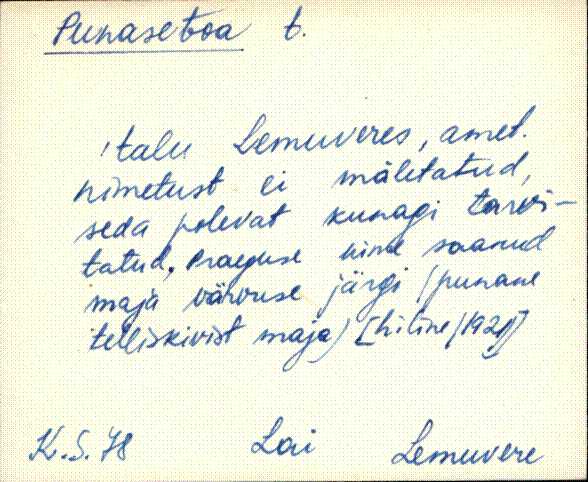 Punasetoa t.
'talu Lemuveres, amet.
nimetust ei mäletatud,
seda polevat kunagi tarvi-
tatud. Praeguse nime saanud
maja värvuse järgi (punane
telliskivist maja) [hiline/1921]
K. S. 78 Lai Lemuvere